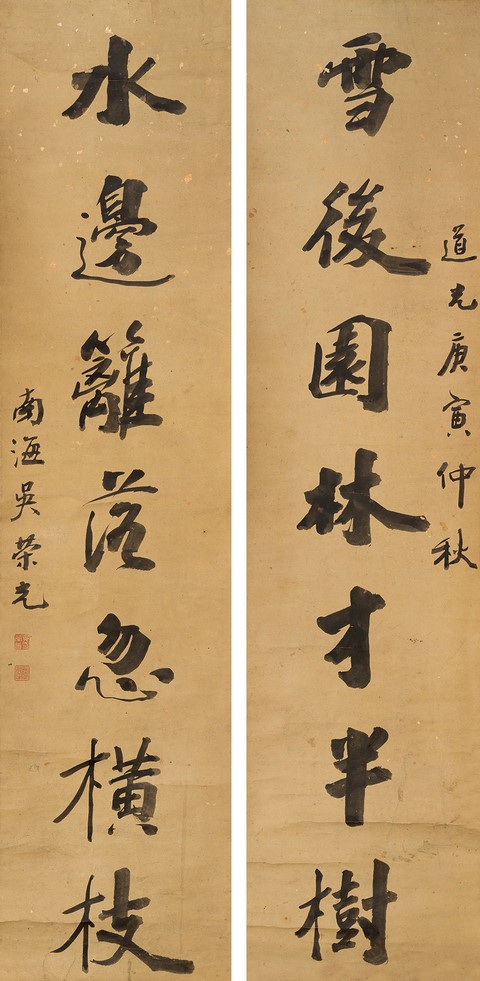 道光庚寅仲秋
雪後園林才半樹
水邊籬落忽橫枝
南海吳榮光